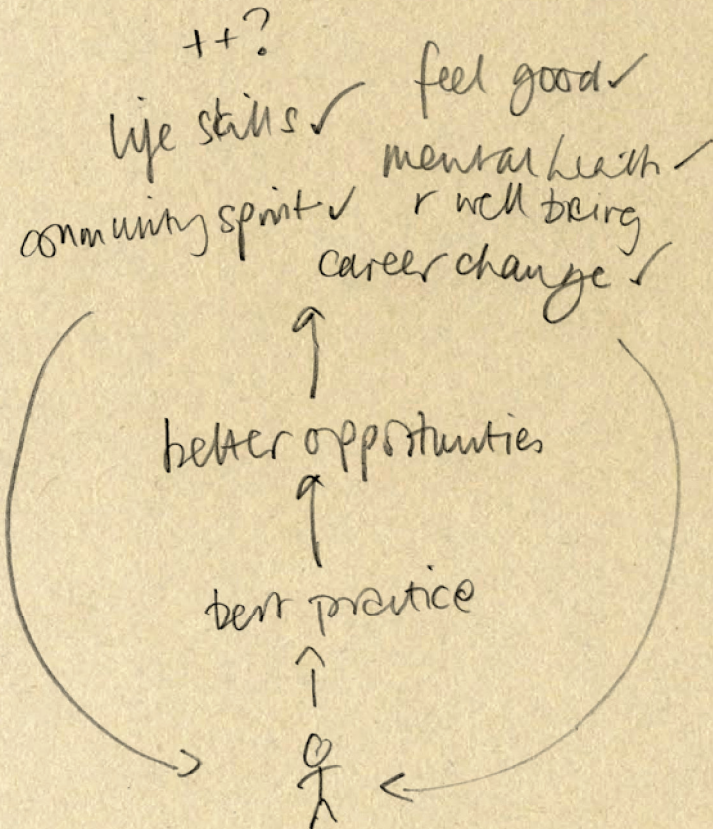 ++?
life skills ✓
feel good ✓
mental health ✓
& well being
community spirit ✓
career change ✓
better opportunities
best practice